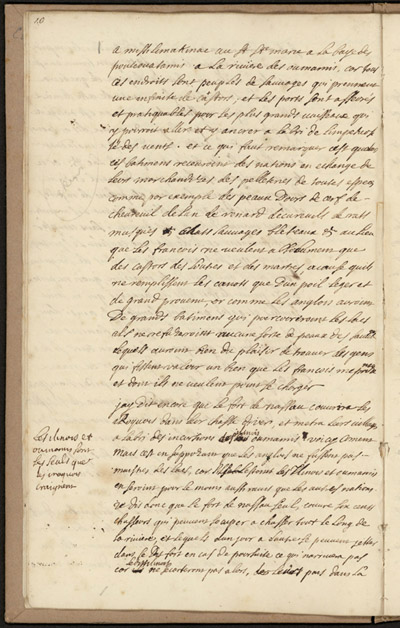 10
a missilimakinac au st ste marie a la baye des
pouteouatamis a la riviere des oumamis, car tous
ces endroits sont peuplés de sauvages qui prennent
une infinité de castors, et les ports sont assurés
et pratiquables pour les plus grands vaisseaux qui
y pourront aller et y ancrer a l'abri de
des vents. et ce qui faut remarquer c'est que
ces batimens recevroient des nations en echange de
leur marchandises des pelleteries de toutes especes
comme par exemple des peaux d'ours de cerf de
chevreuil de renard d'ecureuils de rats
musqués chats sauvages au lieu
que les francois ne veulent absolument que
des castors des loutres et des martres a cause qu'ils
ne remplissent les canots que d'un poil leger et
de grand provenu, or comme les anglois auroient
De grands batimens qui parcourroient les lacs
ils ne refuseroient aucune sorte de peaux des
lesquels auroient bien du plaisir de trouver des gens
qui fissent valoir un bien que les francois meprisent
et dont ils ne veulent point se charger
jay dit encore que le fort de nassau couvrira les
Iroquois dans leur chasse d'hiver, et mettra leurs
a labri des incursions des oumamis voicy comment
mais cest en suposant que les anglois ne fussent pas
maitres des lacs, car les Ilinois et oumamis
en seroient pour le moins aussi amis que les autres nations
je dis donc que le fort de nassau seul, couvre les cent
chasseurs qui peuvent s'occuper a chasser tout le long de
la riviere, et lesquels d'un jour a l'autre se peuvent jetter
dans le dit fort en cas de poursuite ce qui n'arrivera pas
car ne s'ecarteront pas alors, pas dans la
Les ilinois et
oumamis sont
les seuls que
les iroquois
craignent